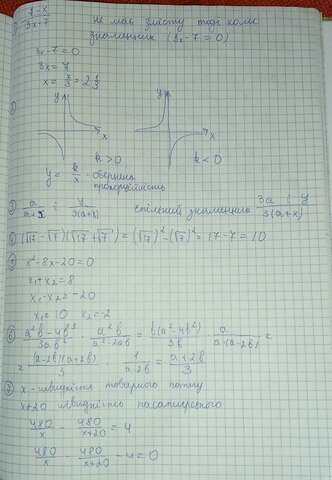 4-x / 3x-7 не має змісту тоді коли
знаменник (3x-7=0)
3x-7=0
3x=7
x = 7/3 = 2 1/3
y y
x x
k>0 k<0
y = k/x - обернена
пропорційність
③ a/(a+x) ; y/3(a+x) спільний знаменник 3a ; y / 3(a+x)
(√17-√7)(√17+√7) = (√17)²-(√7)² = 17-7=10
x²-8x-20=0
x₁+x₂=8
x₁·x₂=-20
x₁=10 x₂=-2
⑥ (a²b-4b³)/3ab² · a²b/(a²-2ab) = b(a²-4b²)/3b · a/a(a-2b) =
= (a-2b)(a+2b)/3 · 1/(a-2b) = (a+2b)/3
⑦ x - швидкість товарного потягу
x+20 швидкість пасажирського
480/x - 480/(x+20) = 4
480/x - 480/(x+20) - 4=0